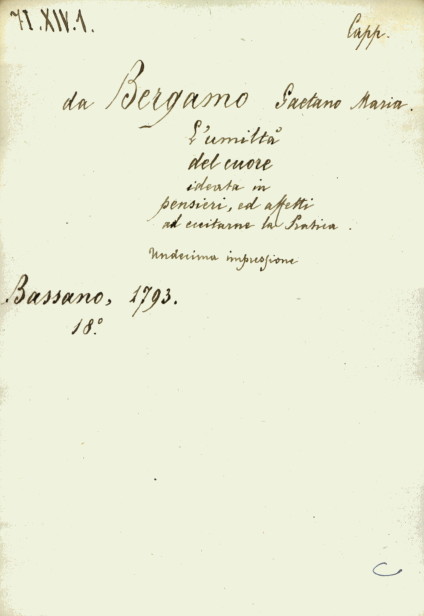 71.XIV.1.
Capp.
da Bergamo Gaetano Maria.
L'umiltà
del cuore
ideata in
pensieri, ed affetti
ad eccitarne la Pratica.
Undecima impressione
Bassano, 1793.
18.º